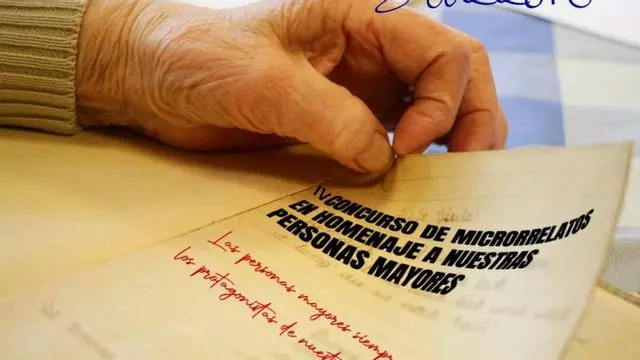 IV CONCURSO DE MICRORRELATOS
EN HOMENAJE A NUESTRAS
PERSONAS MAYORES
Las personas mayores siempr
los protagonistas de nuest